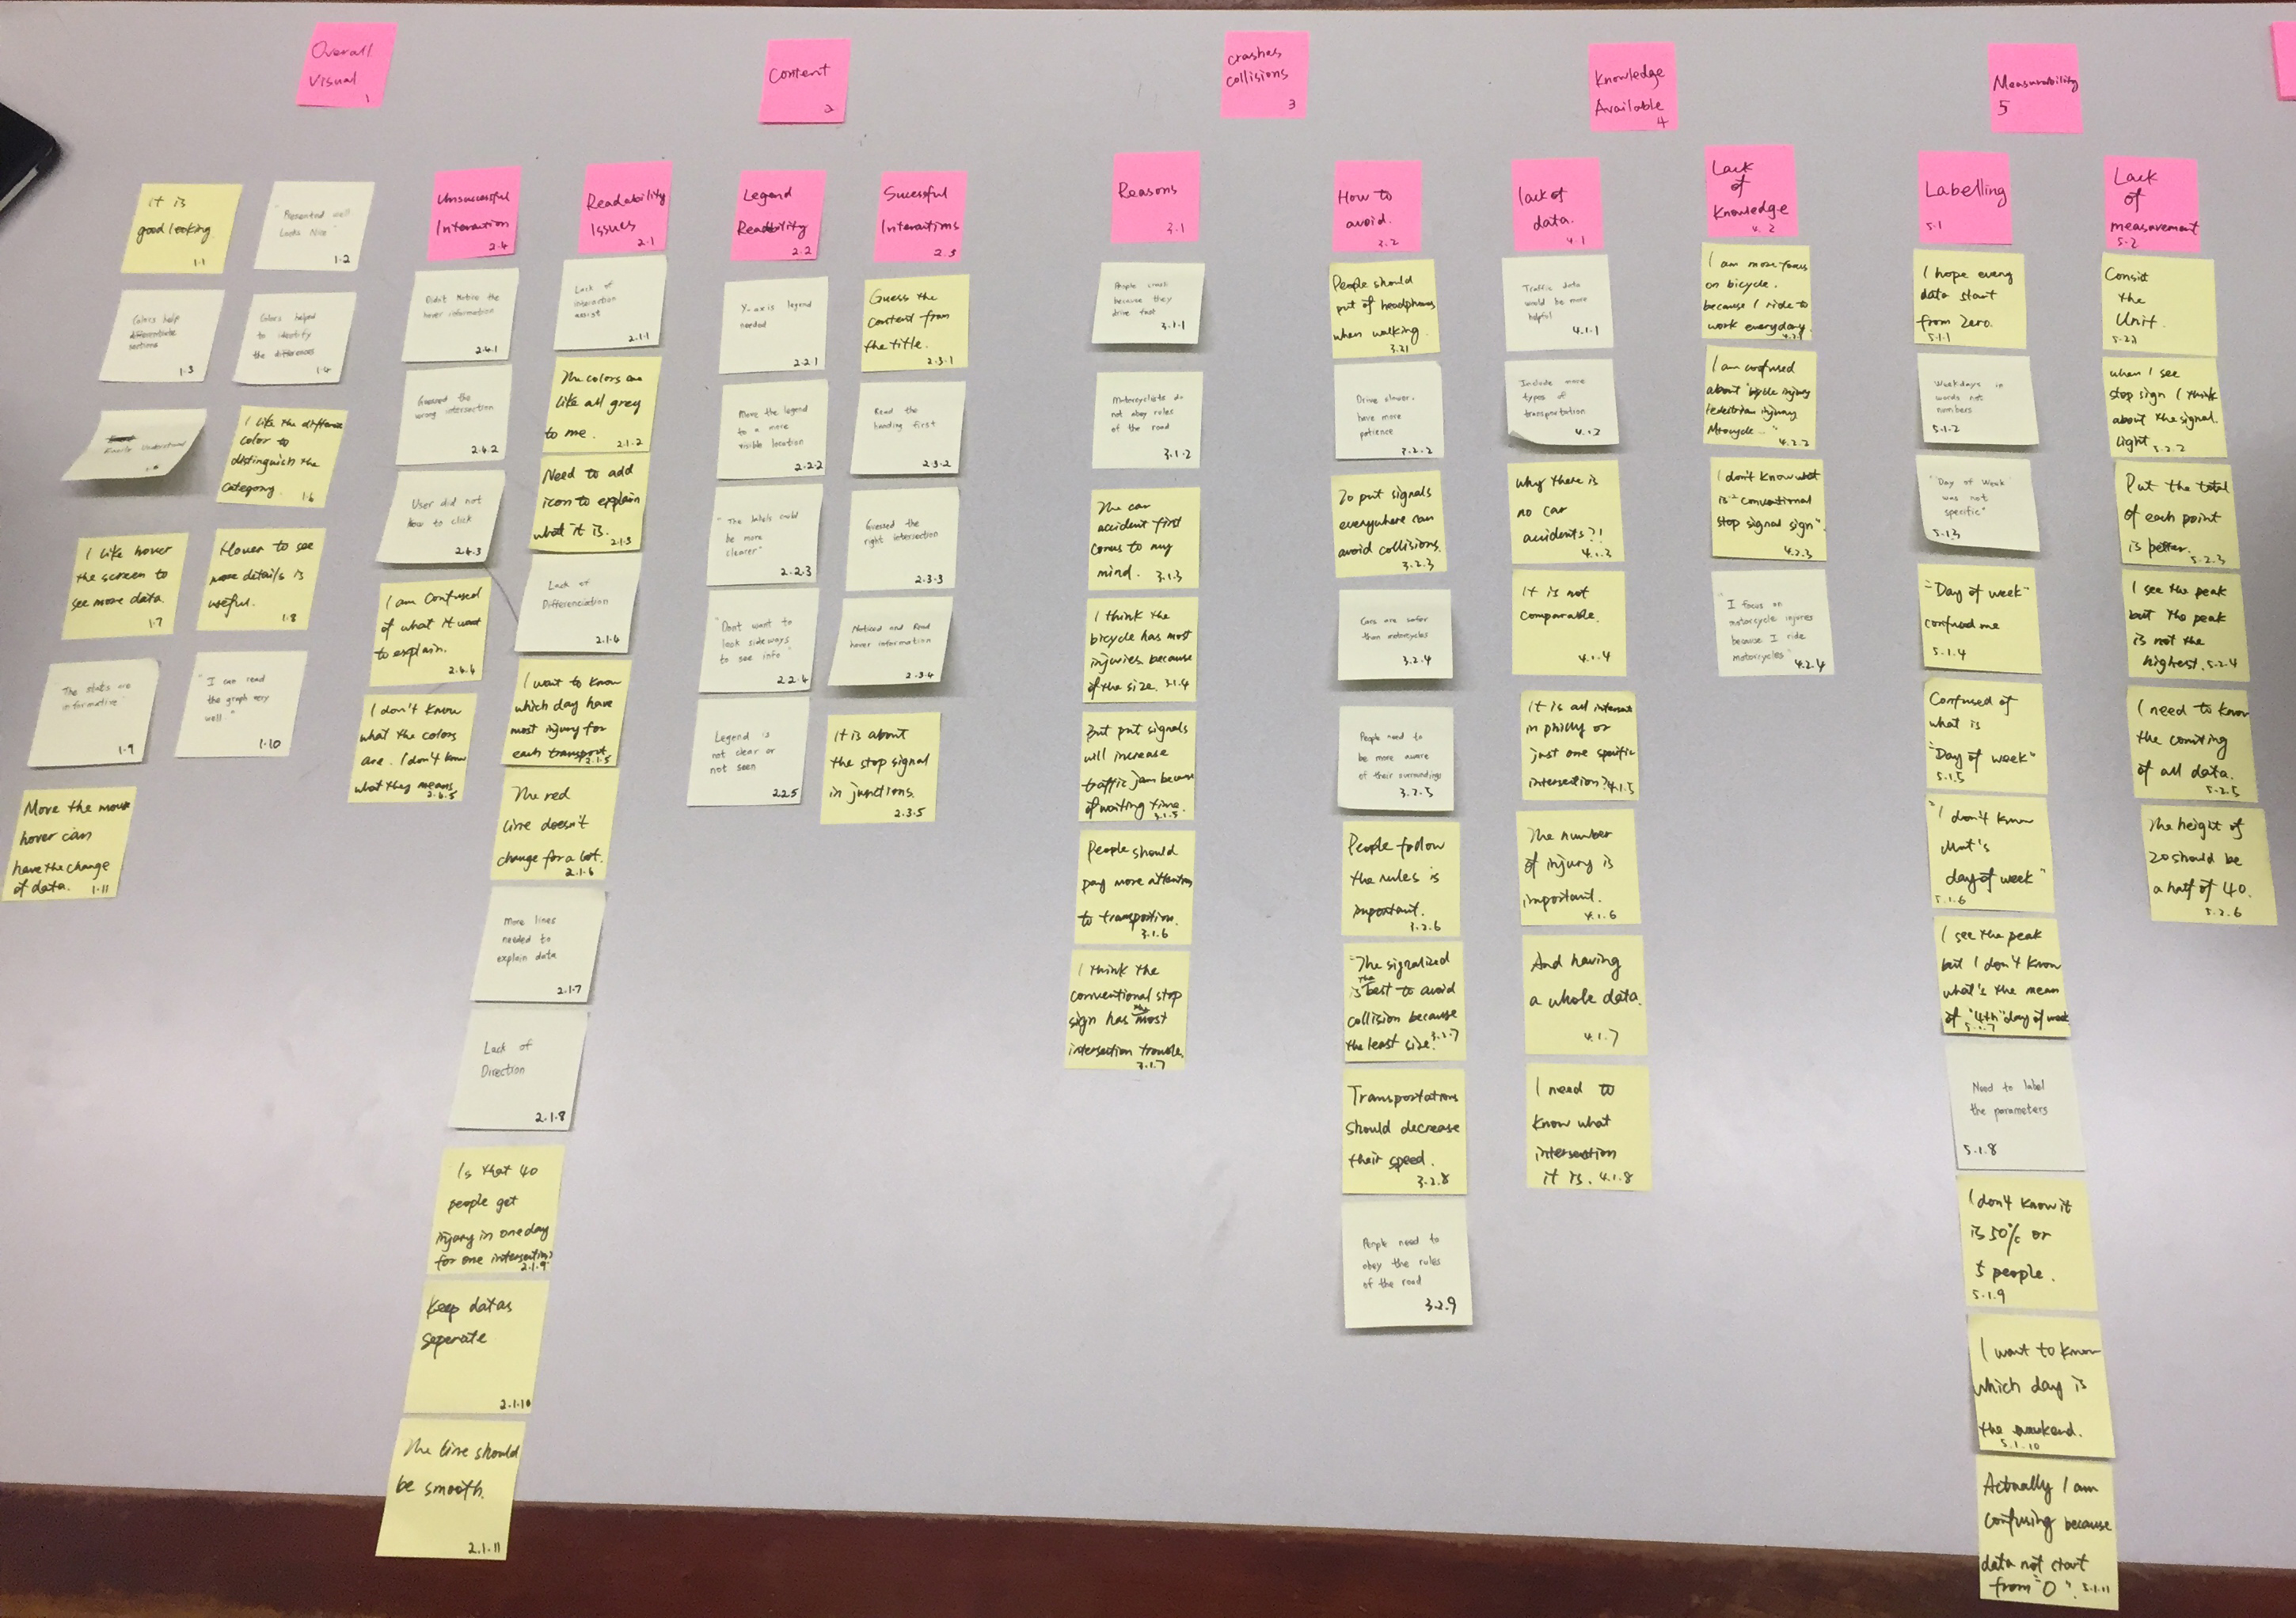 Overall
Visual
1
It is
good looking
1.1
"Presented well
Looks Nice"
1.2
Colors help
differentiate
sections
1.3
Colors helped
to identify
the differences
1.4
Understand
I like the difference
color to
distinguish the
category.
1.6
I like hover
the screen to
see more data.
1.7
Hover to see
more details is
useful.
1.8
"The stats are
informative"
1.9
"I can read
the graph very
well"
1.10
Move the mouse
hover can
have the change
of data. 1.11
Content
2
Unsuccessful
Interaction
2.4
Didn't Notice the
hover information
2.4.1
Guessed the
wrong intersection
2.4.2
User did not
how to click
2.4.3
I am confused
of what it want
to explain.
2.4.4
I don't know
what the colors
are. I don't know
what they means
2.4.5
Readability
Issues
2.1
Lack of
interaction
assist
2.1.1
The colors are
like all grey
to me.
2.1.2
Need to add
icon to explain
what it is.
2.1.3
Lack of
Differenciation
2.1.4
I want to know
which day have
most injury for
each transport
2.1.5
The red
line doesn't
change for a lot.
2.1.6
More lines
needed to
explain data
2.1.7
Lack of
Direction
2.1.8
Is that 40
people get
injury in one day
for one intersection?
2.1.9
Keep datas
seperate
2.1.10
The line should
be smooth.
2.1.11
Legend
Readbility
2.2
Y-axis legend
needed
2.2.1
Move the legend
to a more
visible location
2.2.2
"The labels could
be more
clearer"
2.2.3
"Dont want to
look sideways
to see info"
2.2.4
Legend is
not clear or
not seen
2.2.5
Sucessful
Interactions
2.3
Guess the
content from
the title.
2.3.1
Read the
heading first
2.3.2
Guessed the
right intersection
2.3.3
Noticed and Read
hover information
2.3.4
It is about
the stop signal
in junctions.
2.3.5
crashes
collisions
3
Reasons
3.1
People crash
because they
drive fast
3.1.1
Motorcyclists do
not obey rules
of the road
3.1.2
The car
accident first
comes to my
mind. 3.1.3
I think the
bicycle has most
injuries because
of the size. 3.1.4
But put signals
will increase
traffic jam because
of waiting time.
3.1.5
People should
pay more attention
to transportion.
3.1.6
I think the
conventional stop
sign has the most
intersection trouble.
3.1.7
How to
avoid.
3.2
People should
put of headphones
when walking.
3.2.1
Drive slower,
have more
patience
3.2.2
To put signals
everywhere can
avoid collisions.
3.2.3
Cars are safer
than motorcycles
3.2.4
People need to
be more aware
of their surroundings
3.2.5
People follow
the rules is
important.
3.2.6
"The signalized
is the best to avoid
collision because
the least size." 3.2.7
Transportations
should decrease
their speed.
3.2.8
People need to
obey the rules
of the road
3.2.9
Knowledge
Available
4
lack of
data.
4.1
Traffic data
would be more
helpful
4.1.1
"Include more
types of
transportation
4.1.2
why there is
no car
accidents?!
4.1.3
It is not
comparable.
4.1.4
It is all intersect
in philly or
just one specific
intersection? 4.1.5
The number
of injury is
important.
4.1.6
And having
a whole data.
4.1.7
I need to
know what
intersection
it is. 4.1.8
Lack
of
Knowledge
4.2
I am more focus
on bicycle.
because I ride to
work everyday.
4.2.1
I am confused
about "bicycle injury
Pedestrian injury
4.2.2
I don't know what
is "conventional
stop signal sign".
4.2.3
"I focus on
motorcycle injures
because I ride
motorcycles"
4.2.4
Measurability
5
Labelling
5.1
I hope every
data start
from zero.
5.1.1
Weekdays in
words not
numbers
5.1.2
"Day of Week
was not
specific"
5.1.3
"Day of week"
confused me
5.1.4
Confused of
what is
"Day of week"
5.1.5
"I don't know
what's
day of week"
5.1.6
I see the peak
but I don't know
what's the mean
of "4th" day of week
5.1.7
Need to label
the parameters
5.1.8
I don't know it
is 50% or
5 people.
5.1.9
I want to know
which day is
the weekend.
5.1.10
Actually I am
confusing because
data not start
from "0". 5.1.11
Lack
of
measurement
5.2
Consist
the
Unit.
when I see
stop sign I think
about the signal
light 5.2.2
Put the total
of each point
is better.
5.2.3
I see the peak
but the peak
is not the
highest. 5.2.4
I need to know
the counting
of all data.
5.2.5
The height of
20 should be
a half of 40.
5.2.6